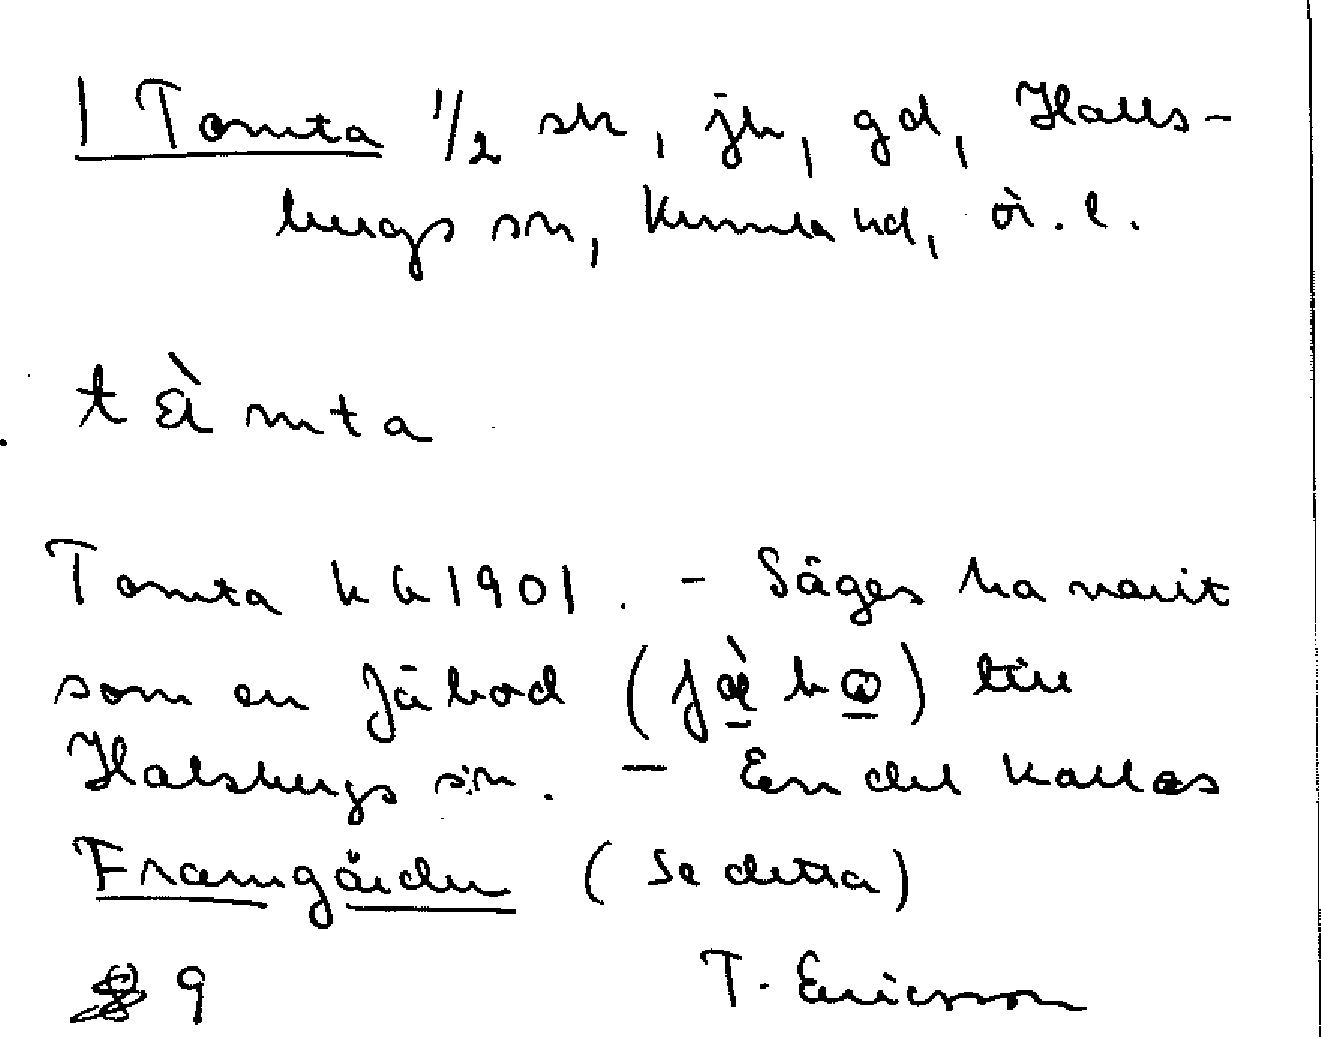 1 Tomta 1/2 sk, jh, gd, Halls-
bergs sn, Kumla hd, ör. l.
tàmta
Tomta kb 1901. - Säges ha varit
som en fäbod (fæ̀bω) till
Halsbergs sn. - En del kallas
Framgården (se detta)
9 T. Ericsson